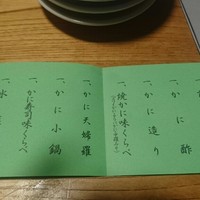 一、かに酢
一、かに造り
一、焼かに味くらべ
一、かに天婦羅
一、かに小鍋
一、かに寿司味くらべ
一、水